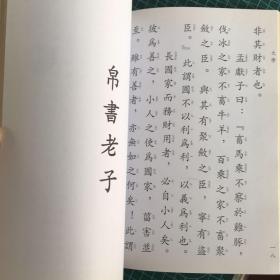 大學
非其財者也。
孟獻子曰：『畜馬乘不察於雞豚，
伐冰之家不畜牛羊，百乘之家不畜聚
斂之臣。與其有聚斂之臣，寧有盜
臣。』此謂國不以利為利，以義為利也。
長國家而務財用者，必自小人矣。
彼為善之，小人之使為國家，菑害並
至。雖有善者，亦無如之何矣！此謂
帛書老子